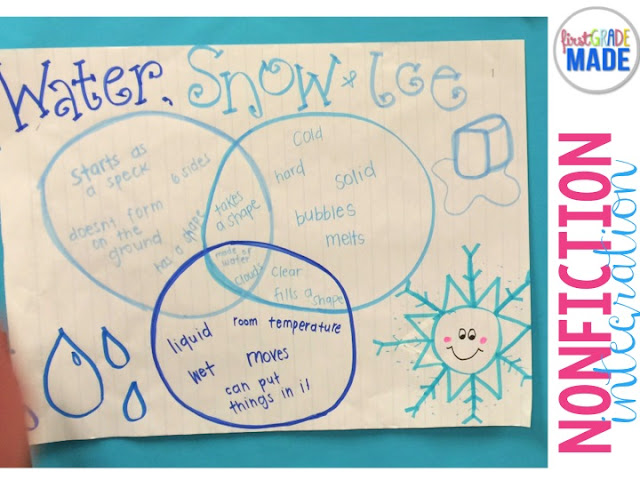 Water, Snow & Ice
Starts as
a speck
6 sides
doesnt form
on the
ground
has a shape
takes
a shape
cold
hard
solid
bubbles
melts
made of
water
clear
fills a
shape
liquid
room temperature
wet
moves
can put
things in it
firstGRADE
MADE
NONFICTION
integration